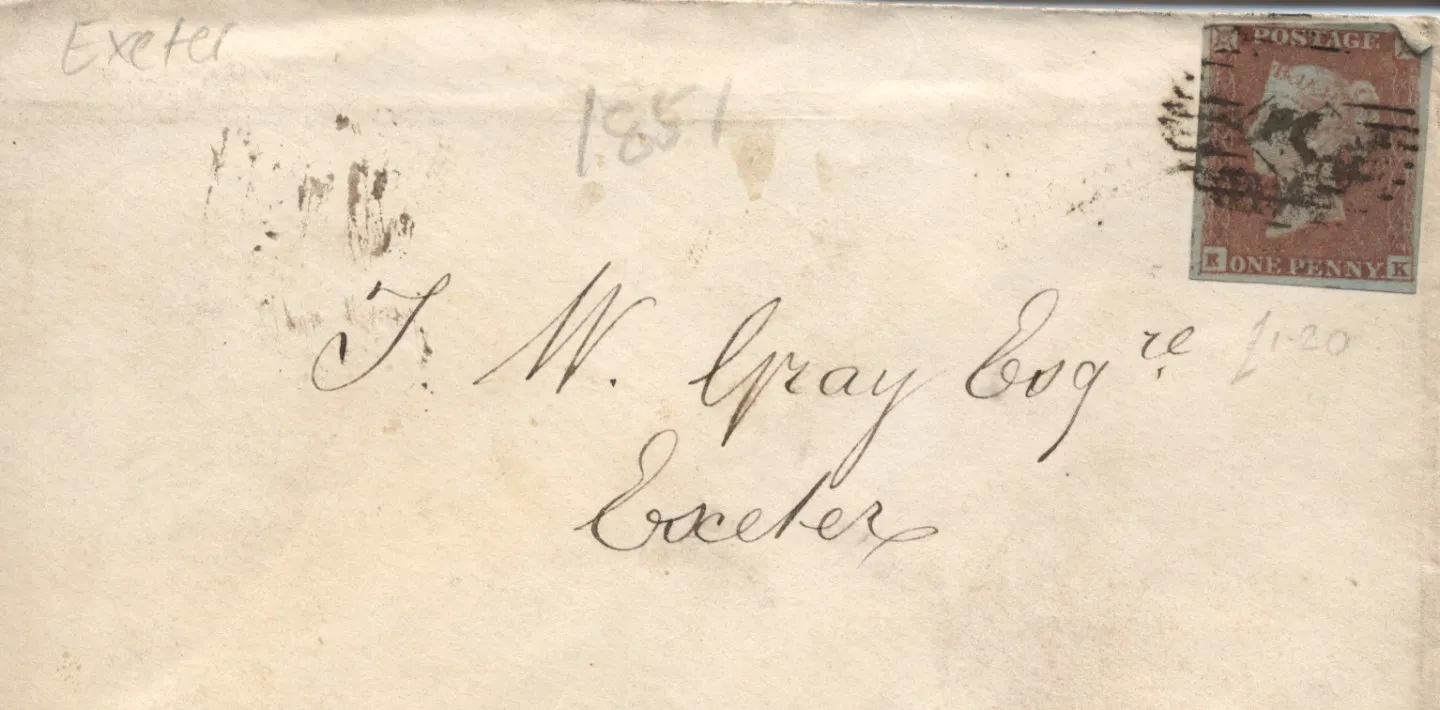 Exeter
1851
POSTAGE
ONE PENNY
K K
T. W. Gray Esqre
£1-20
Exeter